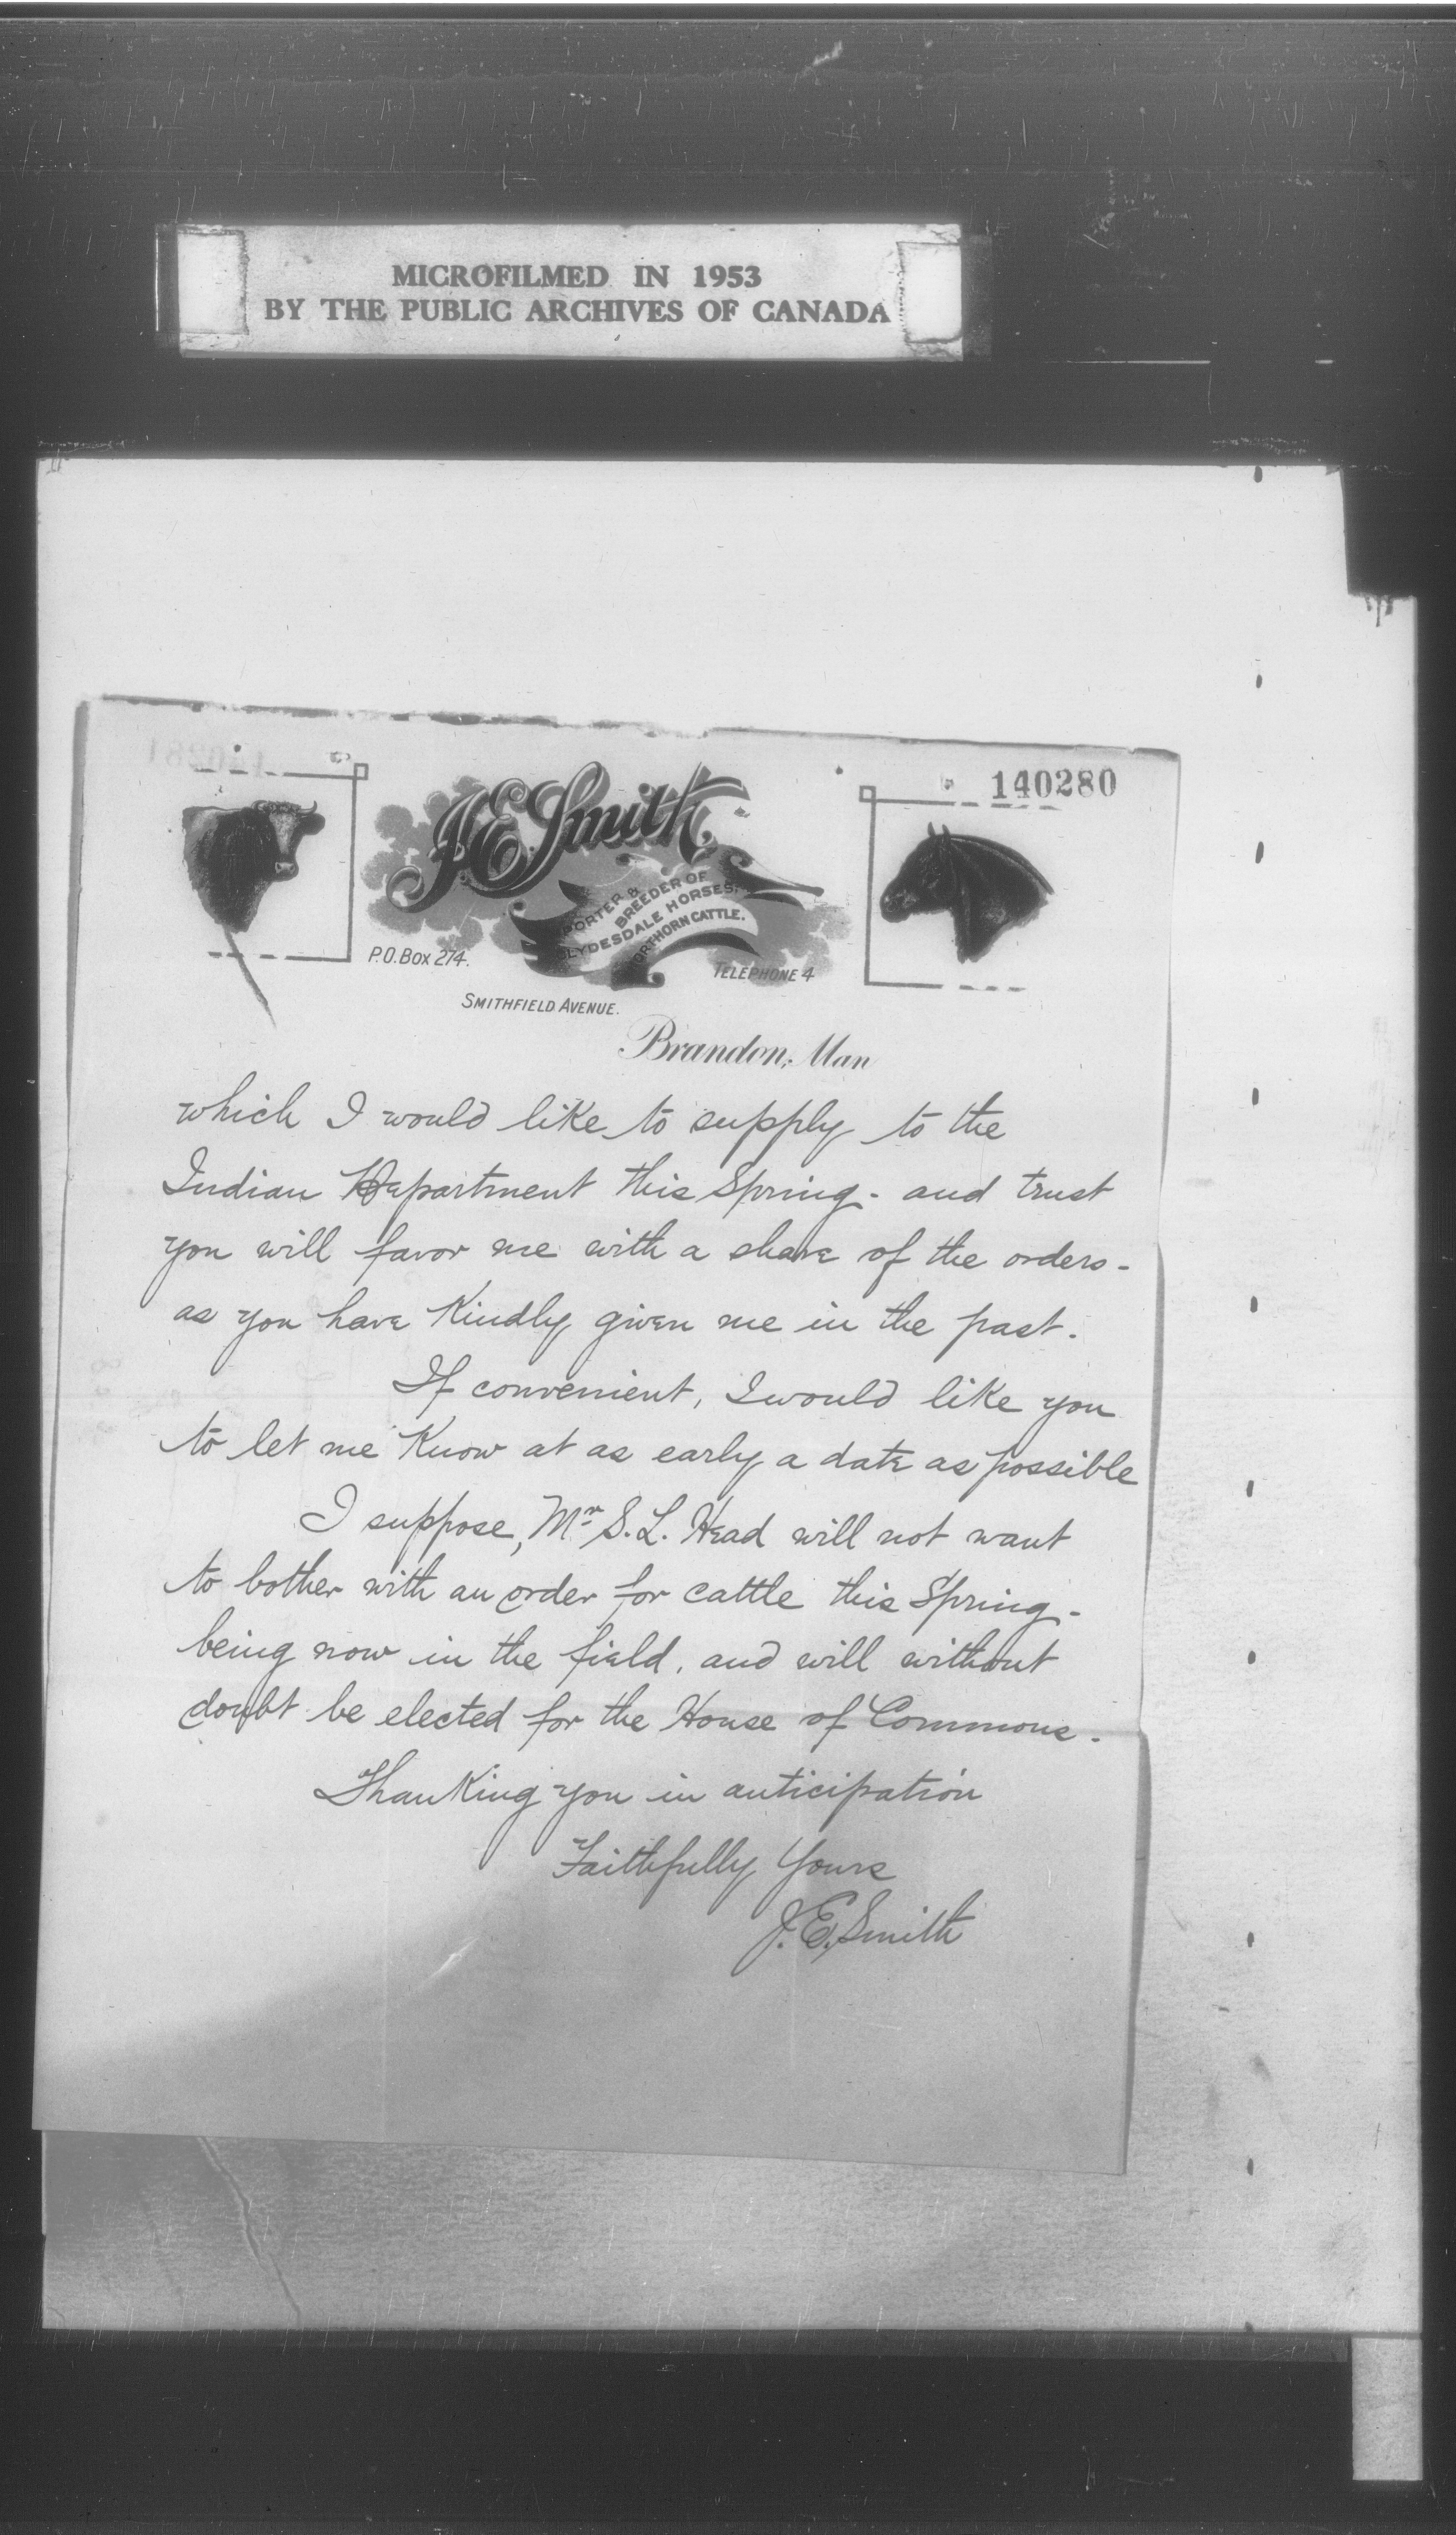 MICROFILMED IN 1953
BY THE PUBLIC ARCHIVES OF CANADA
140280
J.E. Smith,
PORTER &
BREEDER OF
LYDESDALE HORSES,
ORTHORN CATTLE.
P.O. Box 274.
TELEPHONE 4
SMITHFIELD AVENUE.
Brandon, Man
which I would like to supply to the
Indian Department this Spring - and trust
you will favor me with a share of the orders -
as you have Kindly given me in the past.
If convenient, I would like you
to let me Know at as early a date as possible
I suppose, Mr S. L. Head will not want
to bother with an order for cattle this Spring -
being now in the field, and will without
doubt be elected for the House of Commons -
Thanking you in anticipation
Faithfully Yours
J. E. Smith